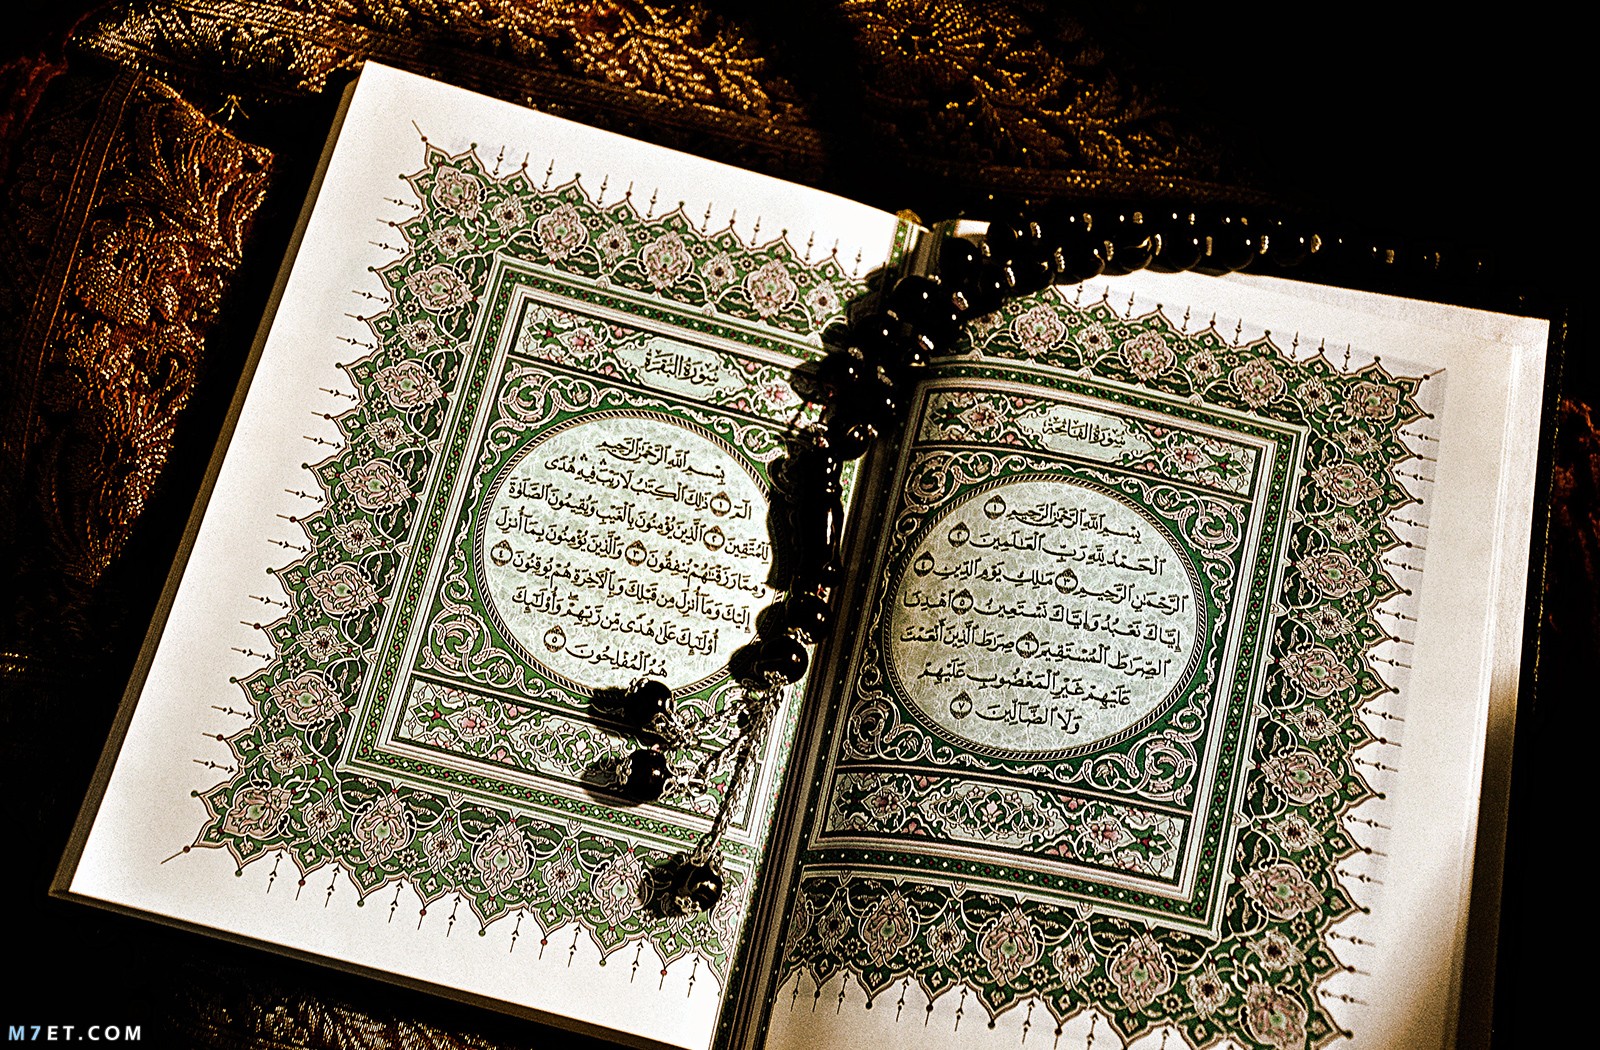 سُورَةُ الفَاتِحَةِ
بِسْمِ ٱللَّهِ ٱلرَّحْمَٰنِ ٱلرَّحِيمِ ١
ٱلْحَمْدُ لِلَّهِ رَبِّ ٱلْعَٰلَمِينَ ٢
ٱلرَّحْمَٰنِ ٱلرَّحِيمِ ٣ مَٰلِكِ يَوْمِ ٱلدِّينِ ٤
إِيَّاكَ نَعْبُدُ وَإِيَّاكَ نَسْتَعِينُ ٥ ٱهْدِنَا
ٱلصِّرَٰطَ ٱلْمُسْتَقِيمَ ٦ صِرَٰطَ ٱلَّذِينَ أَنْعَمْتَ
عَلَيْهِمْ غَيْرِ ٱلْمَغْضُوبِ عَلَيْهِمْ
وَلَا ٱلضَّآلِّينَ ٧
سُورَةُ البَقَرَةِ
بِسْمِ ٱللَّهِ ٱلرَّحْمَٰنِ ٱلرَّحِيمِ
الٓمٓ ١ ذَٰلِكَ ٱلْكِتَٰبُ لَا رَيْبَ ۛ فِيهِ ۛ هُدًى
لِّلْمُتَّقِينَ ٢ ٱلَّذِينَ يُؤْمِنُونَ بِٱلْغَيْبِ وَيُقِيمُونَ ٱلصَّلَوٰةَ
وَمِمَّا رَزَقْنَٰهُمْ يُنفِقُونَ ٣ وَٱلَّذِينَ يُؤْمِنُونَ بِمَآ أُنزِلَ
إِلَيْكَ وَمَآ أُنزِلَ مِن قَبْلِكَ وَبِٱلْءَاخِرَةِ هُمْ يُوقِنُونَ ٤
أُو۟لَٰٓئِكَ عَلَىٰ هُدًى مِّن رَّبِّهِمْ ۖ وَأُو۟لَٰٓئِكَ
هُمُ ٱلْمُفْلِحُونَ ٥
M7ET.COM